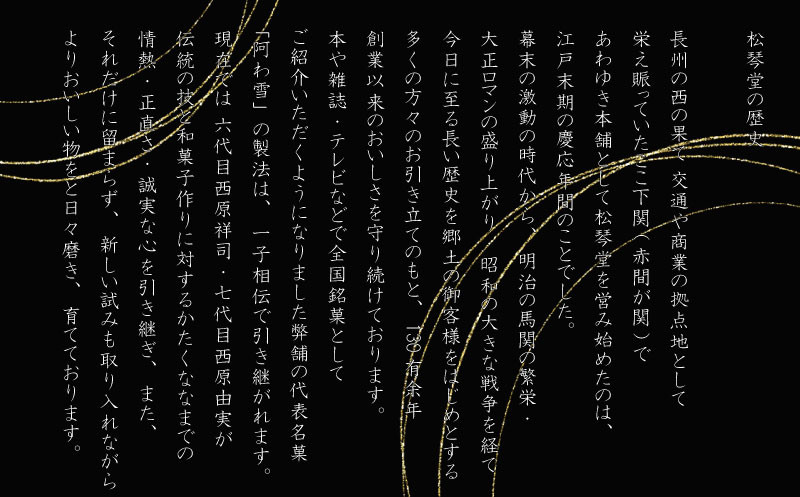 松琴堂の歴史
長州の西の果て 交通や商業の拠点地として
栄え賑っていたここ下関(赤間が関)で
あわゆき本舗として松琴堂を営み始めたのは、
江戸末期の慶応年間のことでした。
幕末の激動の時代から、明治の馬関の繁栄・
大正ロマンの盛り上がり、昭和の大きな戦争を経て
今日に至る長い歴史を郷土の御客様をはじめとする
多くの方々のお引き立てのもと、130有余年
創業以来のおいしさを守り続けております。
本や雑誌・テレビなどで全国銘菓として
ご紹介いただくようになりました弊舗の代表名菓
「阿わ雪」の製法は、一子相伝で引き継がれます。
現在では 六代目西原祥司・七代目西原由実が
伝統の技と和菓子作りに対するかたくななまでの
情熱・正直さ・誠実な心を引き継ぎ、また、
それだけに留まらず、新しい試みも取り入れながら
よりおいしい物をと日々磨き、育てております。